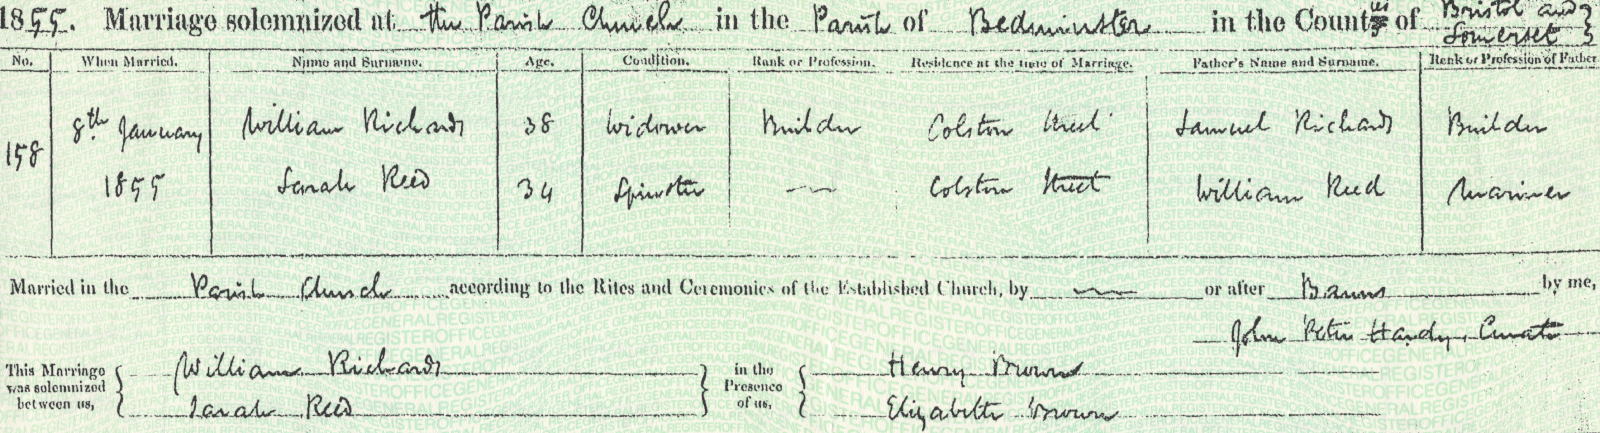 1855. Marriage solemnized at the Parish Church in the Parish of Bedminster in the Counties of Bristol and Somerset
No. When Married. Name and Surname. Age. Condition. Rank or Profession. Residence at the time of Marriage. Father's Name and Surname. Rank or Profession of Father.
158 8th January William Richards 38 Widower Builder Colston Street Samuel Richards Builder
1855 Sarah Reed 34 Spinster — Colston Street William Reed Mariner
Married in the Parish Church according to the Rites and Ceremonies of the Established Church, by — or after Banns by me,
John Peter Hardy, Curate
This Marriage was solemnized between us, { William Richards } in the Presence of us, { Henry Brown
Sarah Reed Elizabeth Brown